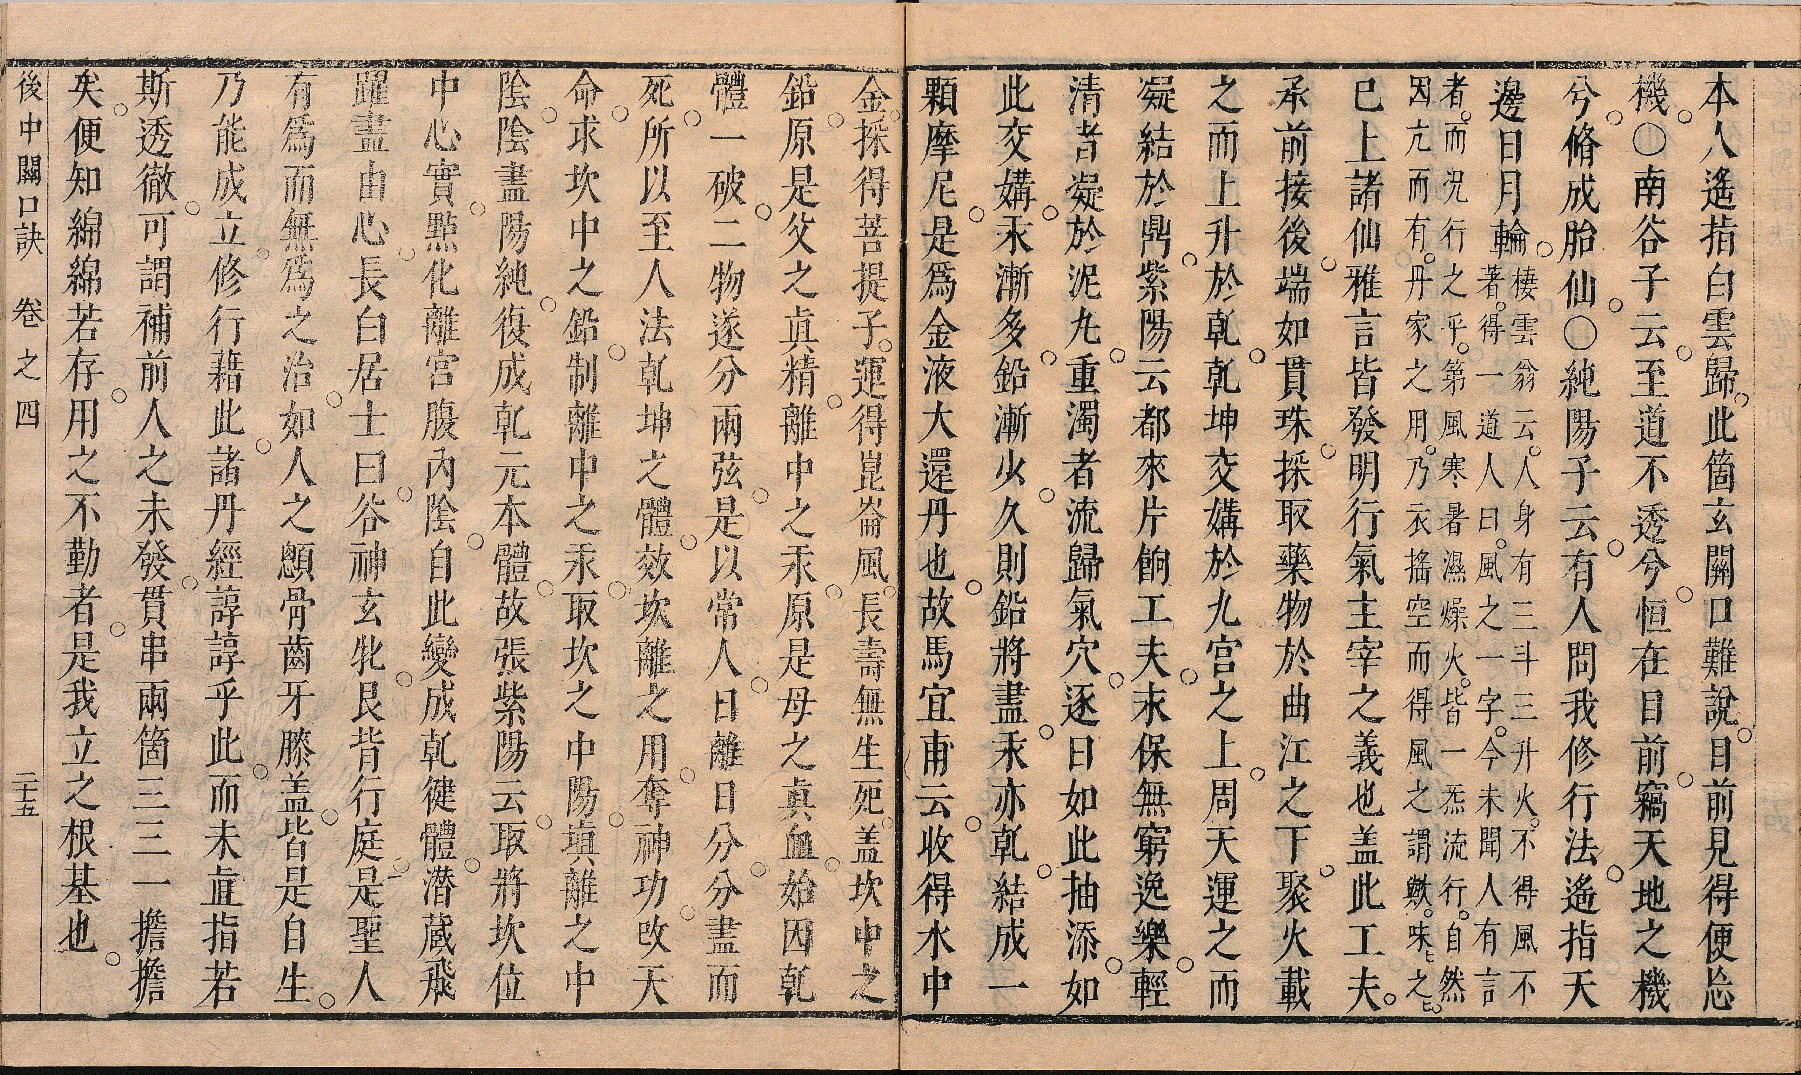 本人遙指白雲歸。此箇玄關口難說。目前見得便忘
機。〇南谷子云至道不透兮。恒在目前。竊天地之機
兮。脩成胎仙。〇純陽子云有人問我修行法。遙指天
邊日月輪。棲雲翁云。人身有二斗三升火。不得風不
著。得一道人曰。風之一字。今未聞人有言
者。而況行之乎。第風寒暑濕燥火。皆一炁流行。自然
因亢而有。丹家之用。乃衣搖空而得風之謂歟。味ヒ之ヒ。
已上諸仙雅言皆發明行氣主宰之義也盖此工夫。
承前接後。端如貫珠。採取藥物於曲江之下。聚火載
之而上升於乾。乾坤交媾於九宮之上。周天運之而
凝結於鼎。紫陽云都來片餉工夫。永保無窮逸樂。輕
清者凝於泥丸。重濁者流歸氣穴。逐日如此抽添。如
此交媾。汞漸多。鉛漸少。久則鉛將盡。汞亦乾。結成一
顆摩尼。是爲金液大還丹也。故馬宜甫云。收得水中
金。採得菩提子。運得崑崙風。長壽無生死。盖坎中之
鉛。原是父之眞精。離中之汞。原是母之眞血。始因乾
體一破。二物遂分兩弦。是以常人。日離日分。分盡而
死。所以至人法乾坤之體。效坎離之用。奪神功。改天
命。求坎中之鉛。制離中之汞。取坎之中陽。塡離之中
陰。陰盡陽純。復成乾元本體。故張紫陽云。取將坎位
中心實。點化離宮腹內陰。自此變成乾健體。潜藏飛
躍盡由心。長白居士曰。谷神玄牝。艮背行庭。是聖人
有爲而無爲之治。如人之顖骨齒牙膝盖。皆是自生。
乃能成立。修行藉此。諸丹經諄諄乎此。而未直指若
斯透徹。可謂補前人之未發。貫串兩箇三三一擔擔
矣。便知綿綿若存。用之不勤者。是我立之根基也。
後中關口訣 卷之四 二十五